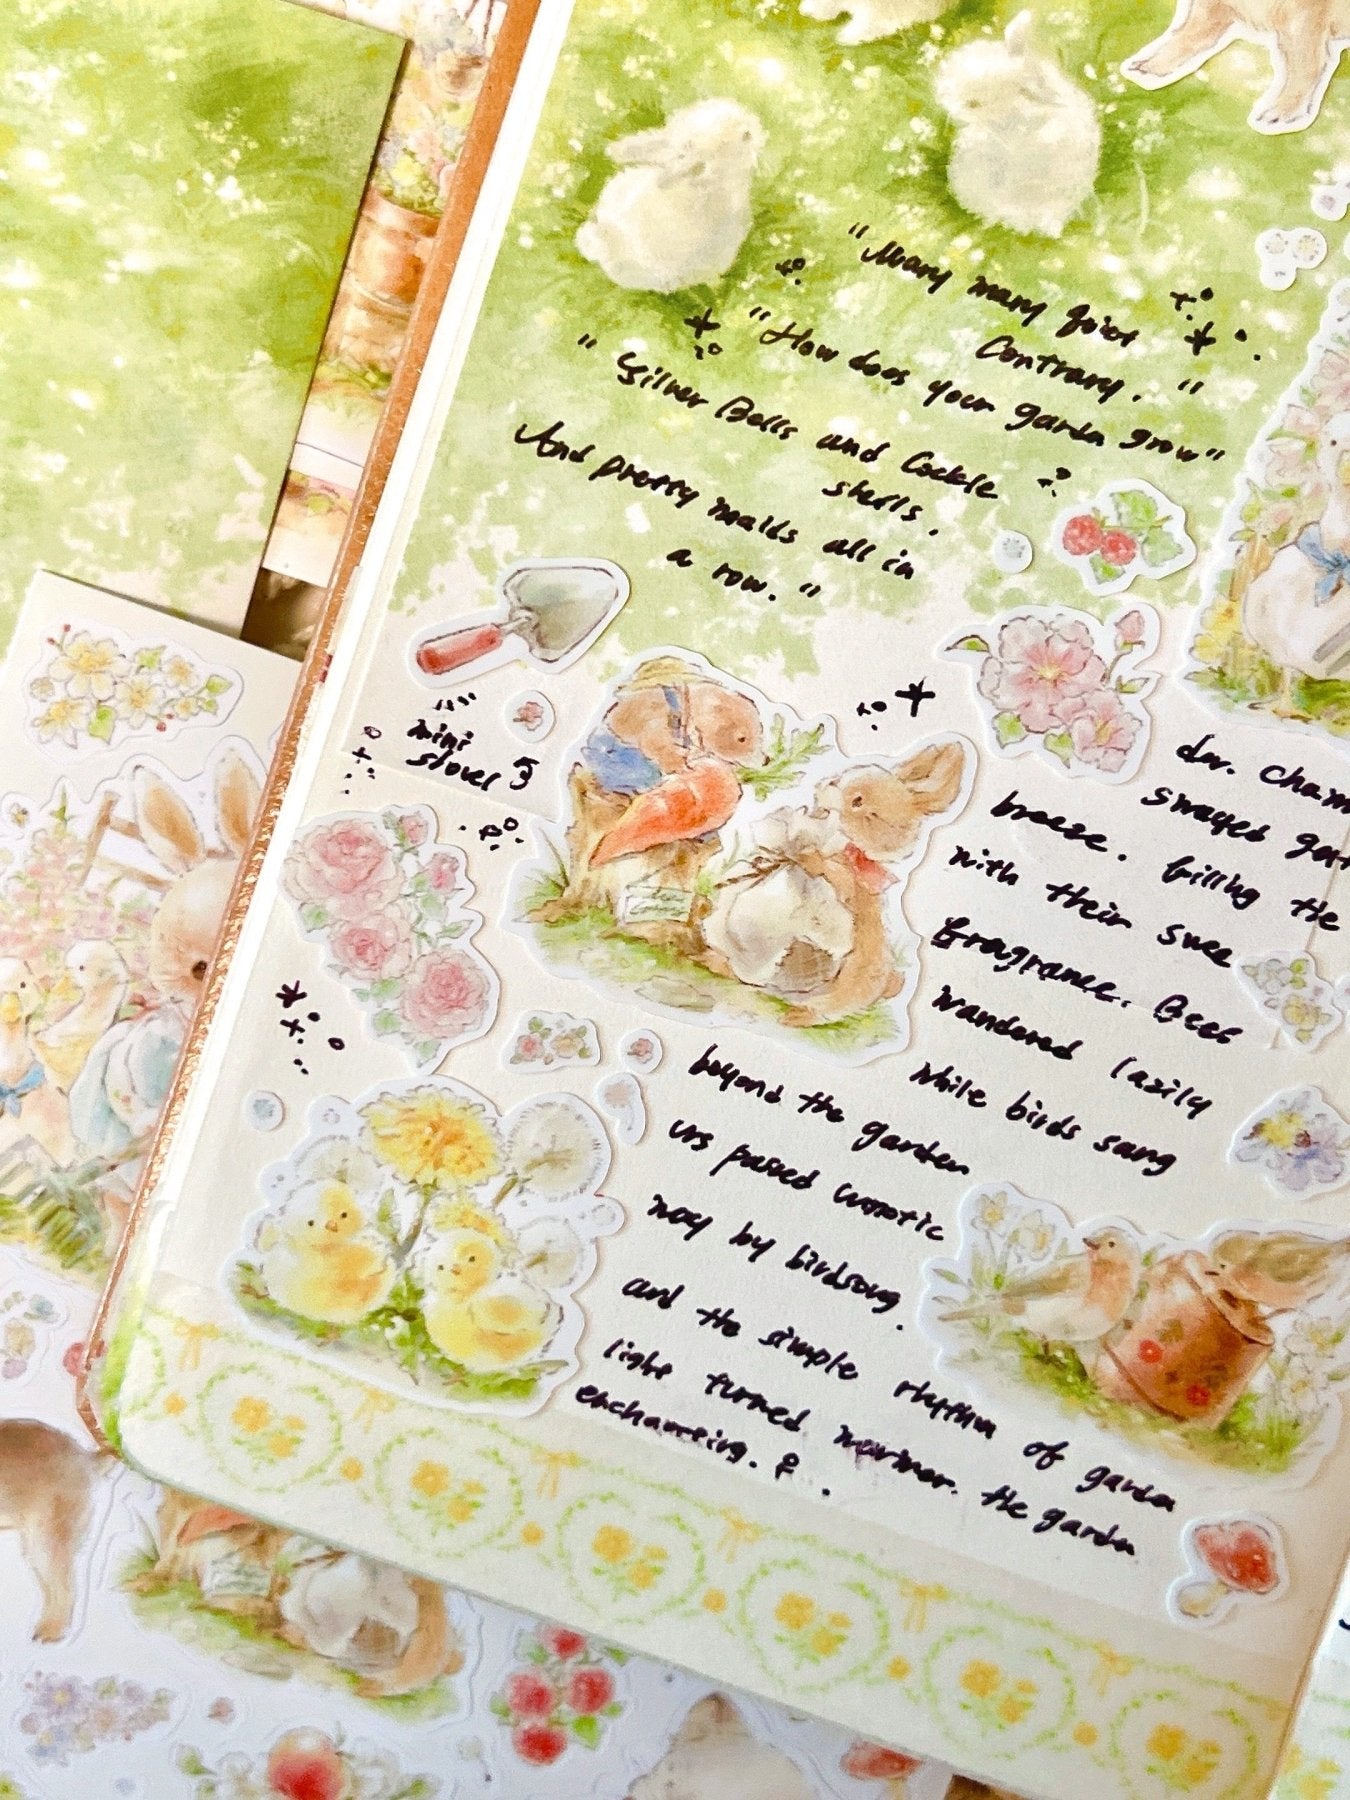 "Mary mary quiet
Contrary. "
"How does your garden grow"
"Silver Bells and Cockle
shells.
And pretty maids all in
a row. "
mini
shovel
dew. Cham
swayed ge
breeze. filling the
with their swee
fragrance. Bees
wandered lazily
while birds sang
beyond the garden
passed
way by birdsong.
and the simple rhythm of garden
light turned. the garden
enchanting.